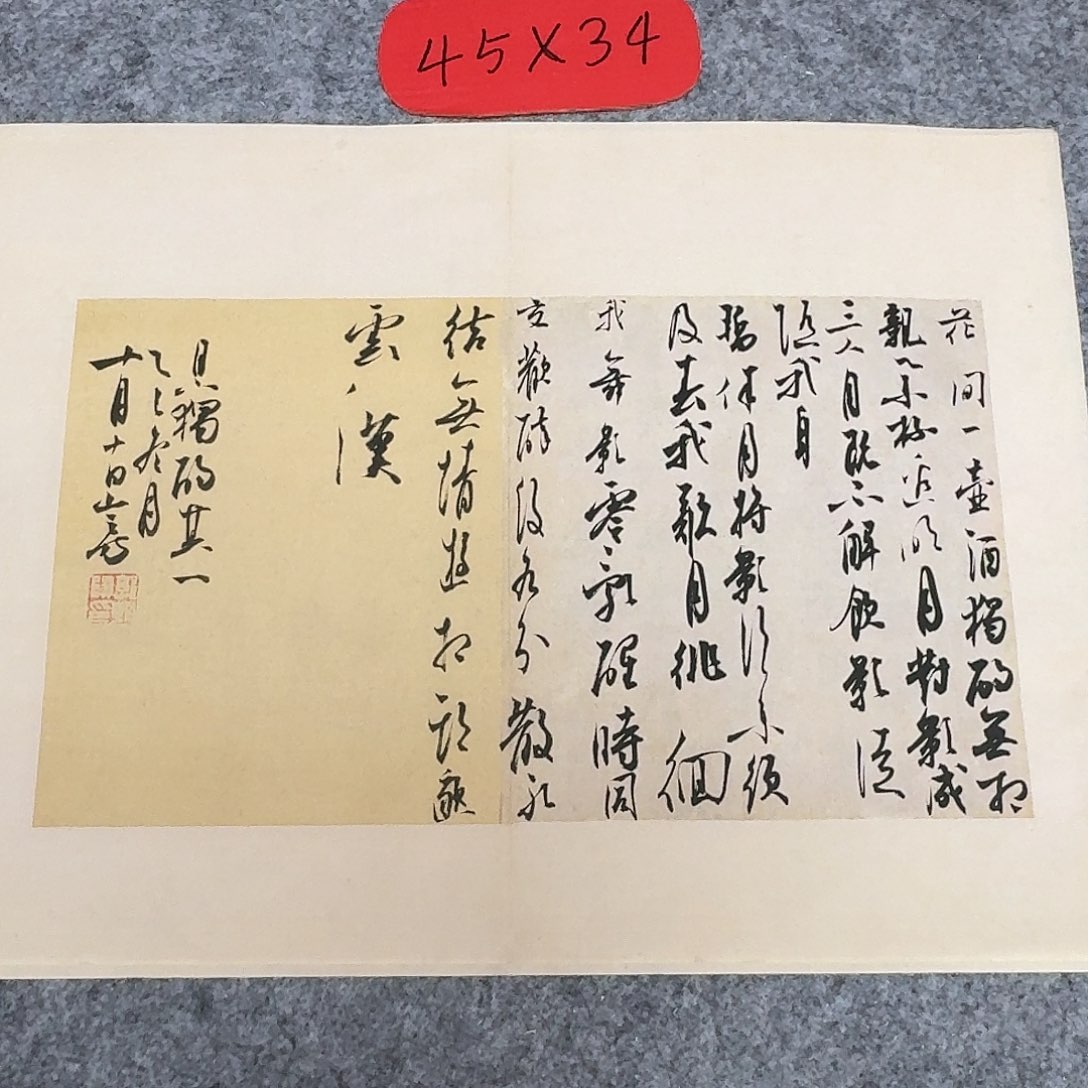 45X34
花間一壺酒獨酌無相
親舉杯邀明月對影成
三人月既不解飲影徒
隨我身
暫伴月將影行樂須
及春我歌月徘徊
我舞影零亂醒時同
交歡醉後各分散永
結無情遊相期邈
雲漢
月獨酌其一
冬月
十月十日